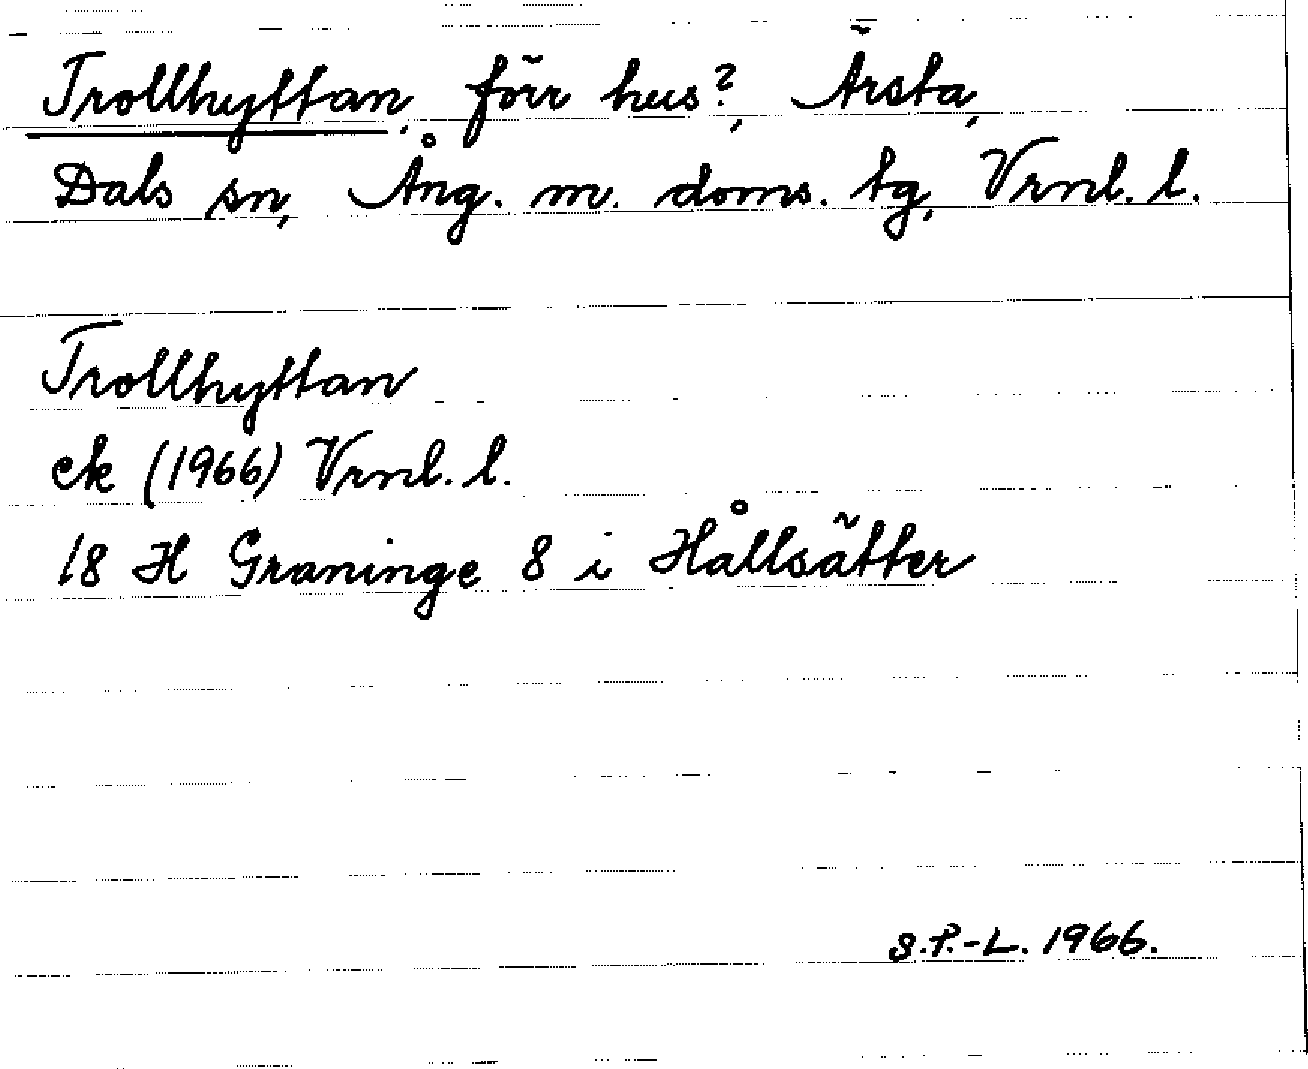 Trollhyttan, förr hus?, Ärsta,
Dals sn, Ång. m. doms. tg, Vrnl. l.
Trollhyttan
ek (1966) Vrnl. l.
18 H Graninge 8 i Hållsätter
S.P.-L. 1966.